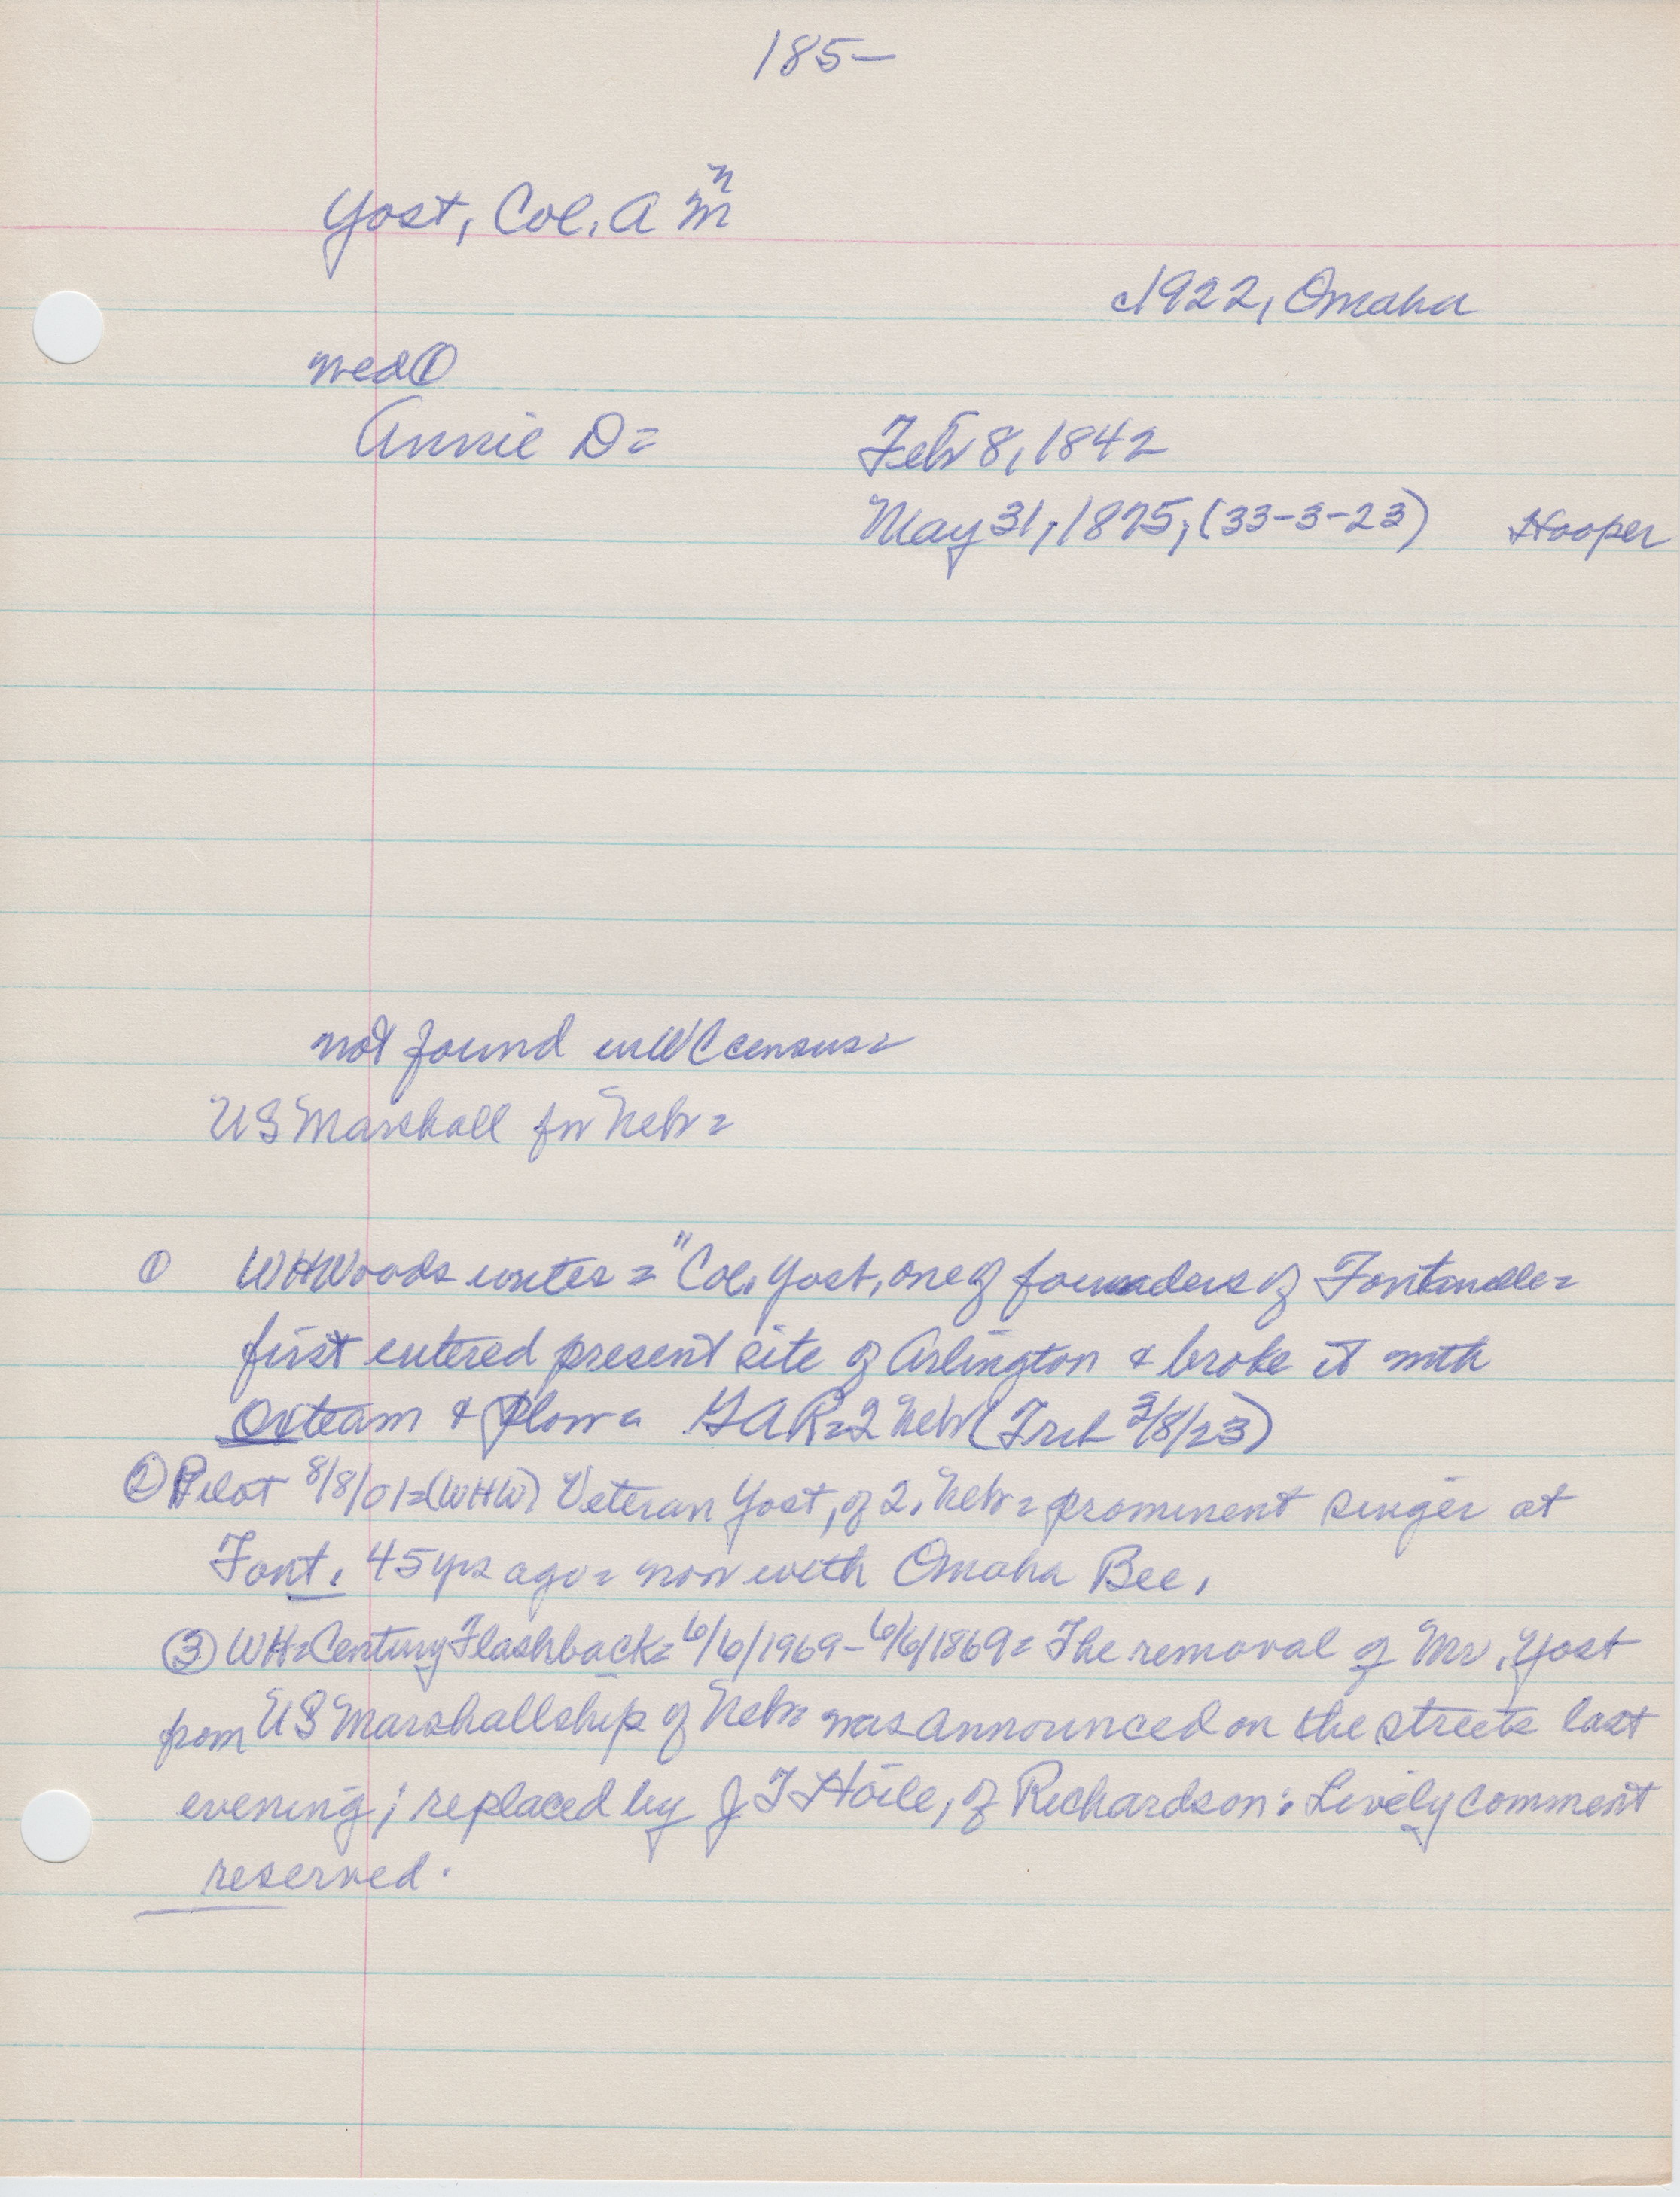 185-
n
Yost, Col. A m
c1922, Omaha
med ①
Annie D= Feb 8, 1842
May 31, 1875, (33-3-23) Hooper
not found in WC census=
US Marshall for Nebr=
① WHWoods writes = "Col. Yost, one of founders of Fontanelle=
first entered present site of Arlington & broke it with
Oxteam & plow= GAR=2 Nebr (Trib 3/8/23)
② Pilot 8/8/01=(WHW) Veteran Yost, of 2. Nebr= prominent singer at
Font. 45 yrs ago= now with Omaha Bee.
③ WH=Century Flashback= 6/6/1969-6/6/1869= The removal of Mr. Yost
from US Marshallship of Nebr= was announced on the streets last
evening; replaced by J T Hoile, of Richardson: Lively comment
reserved.